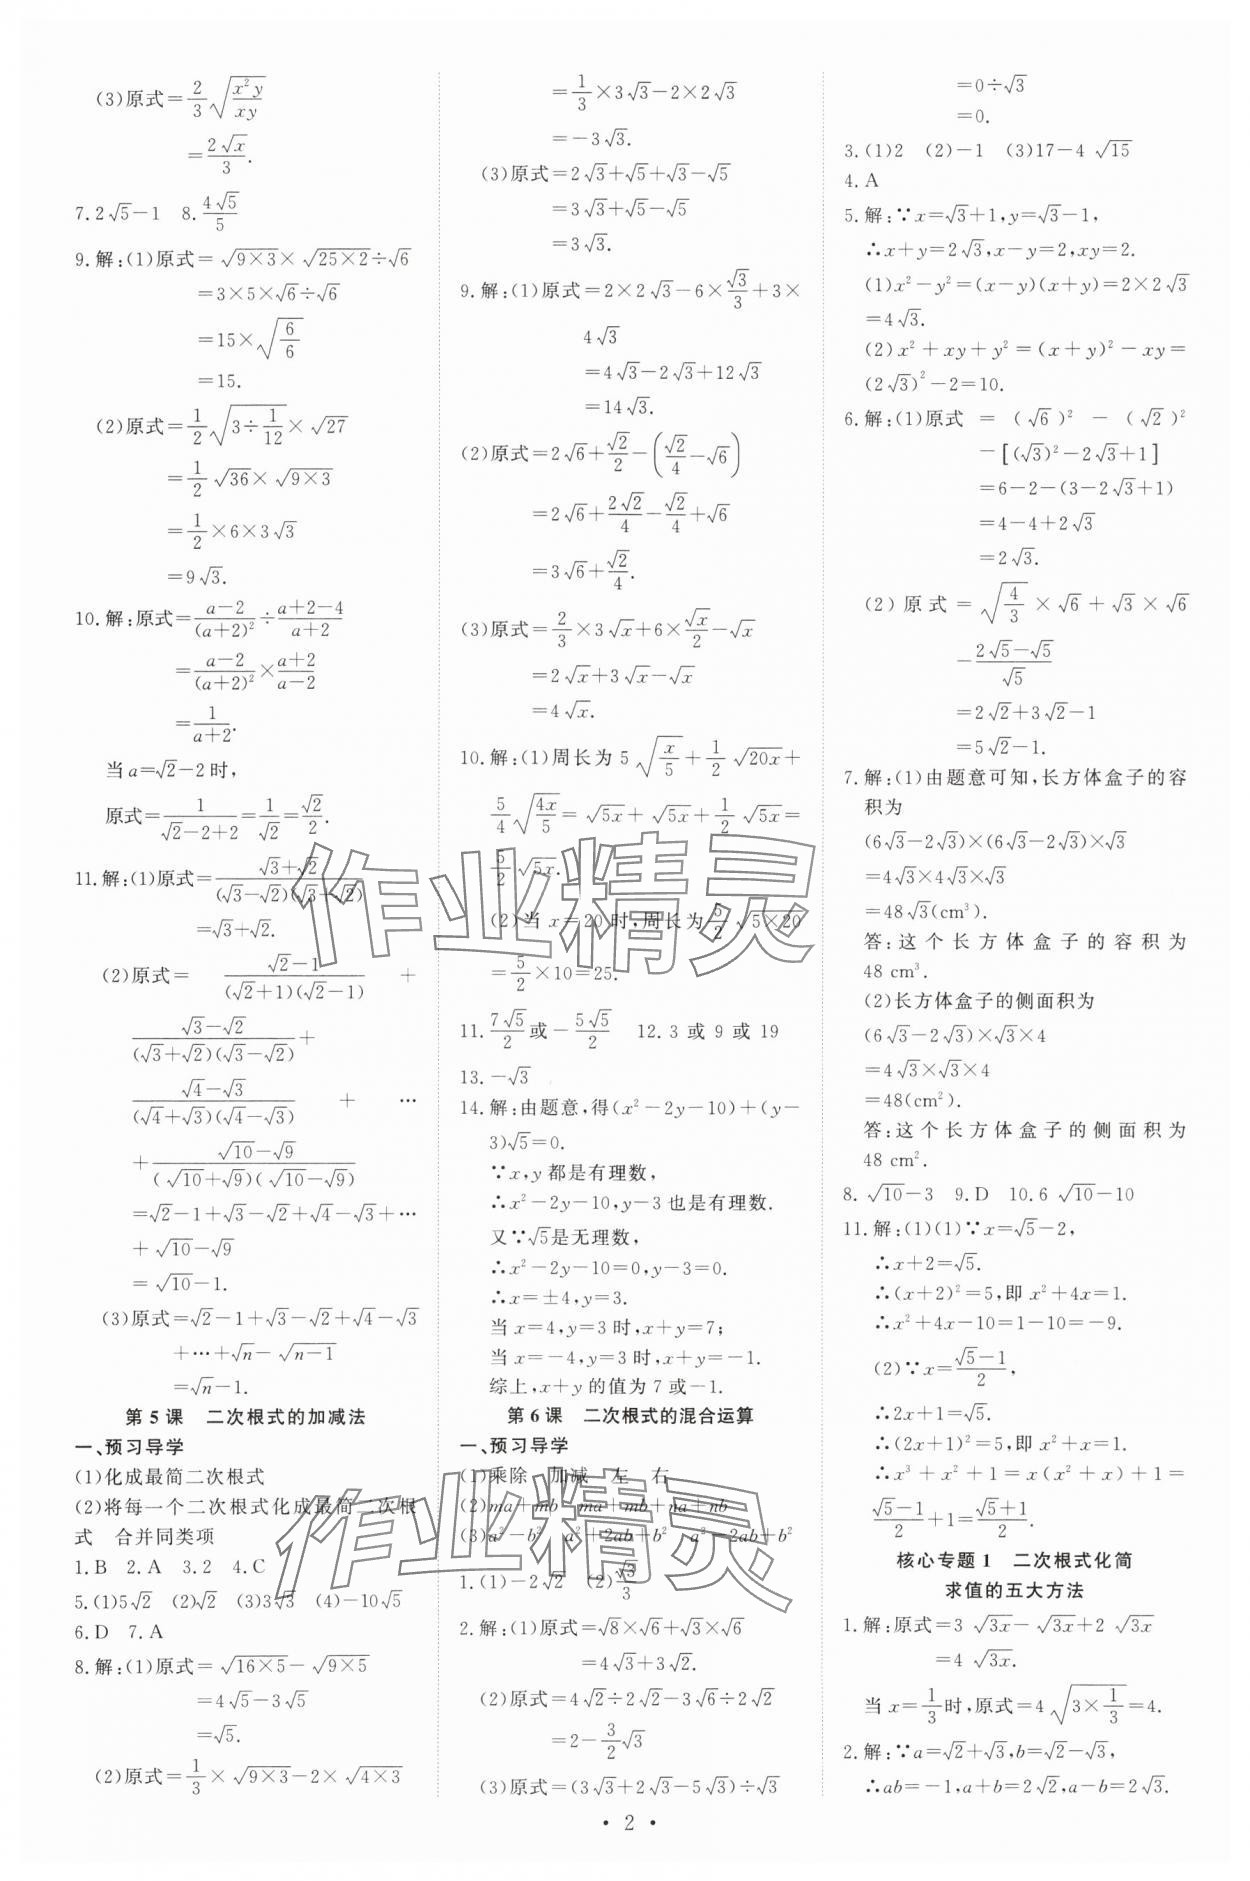 (3)原式=2/3√(x²y/xy)
=2√x/3.
7.2√5-1 8.4√5/5
9.解:(1)原式=√(9×3)×√(25×2)÷√6
=3×5×√6÷√6
=15×√(6/6)
=15.
(2)原式=1/2√(3÷1/12)×√27
=1/2√36×√(9×3)
=1/2×6×3√3
=9√3.
10.解:原式=(a-2)/(a+2)²÷(a+2-4)/(a+2)
=(a-2)/(a+2)²×(a+2)/(a-2)
=1/(a+2).
当a=√2-2时,
原式=1/(√2-2+2)=1/√2=√2/2.
11.解:(1)原式=(√3+√2)/((√3-√2)(√3+√2))
=√3+√2.
(2)原式=(√2-1)/((√2+1)(√2-1))+
(√3-√2)/((√3+√2)(√3-√2))+
(√4-√3)/((√4+√3)(√4-√3))+…
+(√10-√9)/((√10+√9)(√10-√9))
=√2-1+√3-√2+√4-√3+…
+√10-√9
=√10-1.
(3)原式=√2-1+√3-√2+√4-√3
+…+√n-√(n-1)
=√n-1.
第5课 二次根式的加减法
一、预习导学
(1)化成最简二次根式
(2)将每一个二次根式化成最简二次根
式 合并同类项
1.B 2.A 3.2 4.C
5.(1)5√2 (2)√2 (3)3√3 (4)-10√5
6.D 7.A
8.解:(1)原式=√(16×5)-√(9×5)
=4√5-3√5
=√5.
(2)原式=1/3×√(9×3)-2×√(4×3)
=1/3×3√3-2×2√3
=-3√3.
(3)原式=2√3+√5+√3-√5
=3√3+√5-√5
=3√3.
9.解:(1)原式=2×2√3-6×√3/3+3×
4√3
=4√3-2√3+12√3
=14√3.
(2)原式=2√6+√2/2-(√2/4-√6)
=2√6+2√2/4-√2/4+√6
=3√6+√2/4.
(3)原式=2/3×3√x+6×√x/2-√x
=2√x+3√x-√x
=4√x.
10.解:(1)周长为5√(x/5)+1/2√(20x)+
5/4√(4x/5)=√(5x)+√(5x)+1/2√(5x)=
5/2√(5x).
(2)当x=20时,周长为5/2√(5×20)
=5/2×10=25.
11.7√5/2或-5√5/2 12.3或9或19
13.-√3
14.解:由题意,得(x²-2y-10)+(y-
3)√5=0.
∵x,y都是有理数,
∴x²-2y-10,y-3也是有理数.
又∵√5是无理数,
∴x²-2y-10=0,y-3=0.
∴x=±4,y=3.
当x=4,y=3时,x+y=7;
当x=-4,y=3时,x+y=-1.
综上,x+y的值为7或-1.
第6课 二次根式的混合运算
一、预习导学
(1)乘除 加减 左 右
(2)ma+mb ma+mb+na+nb
(3)a²-b² a²+2ab+b² a²-2ab+b²
1.(1)-2√2 (2)√3/3
2.解:(1)原式=√8×√6+√3×√6
=4√3+3√2.
(2)原式=4√2÷2√2-3√6÷2√2
=2-3/2√3
(3)原式=(3√3+2√3-5√3)÷√3
=0÷√3
=0.
3.(1)2 (2)-1 (3)17-4√15
4.A
5.解:∵x=√3+1,y=√3-1,
∴x+y=2√3,x-y=2,xy=2.
(1)x²-y²=(x-y)(x+y)=2×2√3
=4√3.
(2)x²+xy+y²=(x+y)²-xy=
(2√3)²-2=10.
6.解:(1)原式=(√6)²-(√2)²
-[(√3)²-2√3+1]
=6-2-(3-2√3+1)
=4-4+2√3
=2√3.
(2)原式=√(4/3)×√6+√3×√6
-(2√5-√5)/√5
=2√2+3√2-1
=5√2-1.
7.解:(1)由题意可知,长方体盒子的容
积为
(6√3-2√3)×(6√3-2√3)×√3
=4√3×4√3×√3
=48√3(cm³).
答:这个长方体盒子的容积为
48 cm³.
(2)长方体盒子的侧面积为
(6√3-2√3)×√3×4
=4√3×√3×4
=48(cm²).
答:这个长方体盒子的侧面积为
48 cm².
8.√10-3 9.D 10.6√10-10
11.解:(1)(1)∵x=√5-2,
∴x+2=√5.
∴(x+2)²=5,即x²+4x=1.
∴x²+4x-10=1-10=-9.
(2)∵x=(√5-1)/2,
∴2x+1=√5.
∴(2x+1)²=5,即x²+x=1.
∴x³+x²+1=x(x²+x)+1=
(√5-1)/2+1=(√5+1)/2.
核心专题1 二次根式化简
求值的五大方法
1.解:原式=3√(3x)-√(3x)+2√(3x)
=4√(3x).
当x=1/3时,原式=4√(3×1/3)=4.
2.解:∵a=√2+√3,b=√2-√3,
∴ab=-1,a+b=2√2,a-b=2√3.
·2·
作业精灵
作业精灵